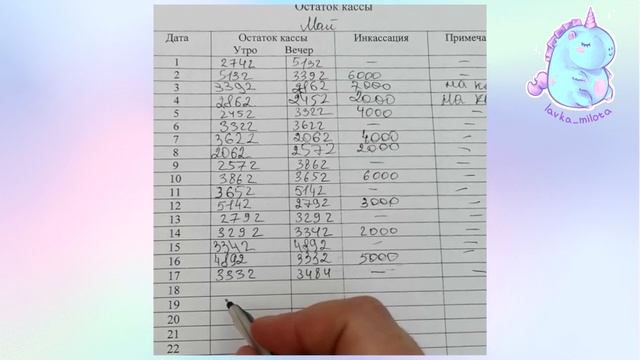 Остаток кассы
Май
Дата Остаток кассы Инкассация Примеча
Утро Вечер
1 2742 5132 — —
2 5132 3392 6000 —
3 3392 2862 7000 на к
4 2862 2452 2000 на к
5 2452 3322 4000 —
6 3322 3622 — —
7 3622 2062 4000 —
8 2062 2572 2000 —
9 2572 3862 — —
10 3862 3652 6000 —
11 3652 5142 — —
12 5142 2792 3000 —
13 2792 3292 — —
14 3292 3342 2000 —
15 3342 4892 — —
16 4892 3332 5000 —
17 3332 3484 — —
18
19
20
21
22
lavka_milota